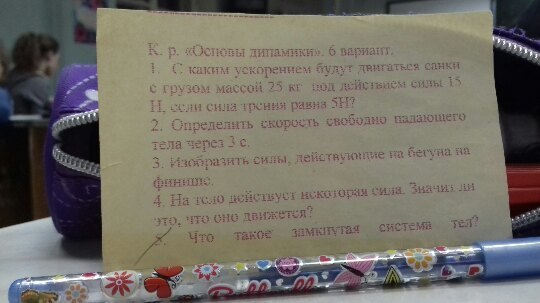 К. р. «Основы динамики». 6 вариант.
1. С каким ускорением будут двигаться санки
с грузом массой 25 кг под действием силы 15
Н, если сила трения равна 5Н?
2. Определить скорость свободно падающего
тела через 3 с.
3. Изобразить силы, действующие на бегуна на
финише.
4. На тело действует некоторая сила. Значит ли
это, что оно движется?
Что такое замкнутая система тел?